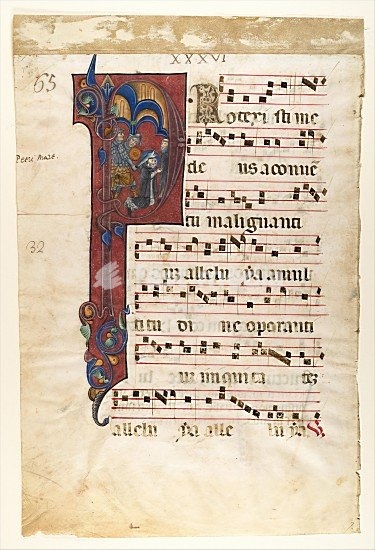 XXXVI
65
Protexisti me
de us a conuē
tu malignanti
uz allelu ya a mul
titu di ne operanti
uz iniquita tez
allelu ya alle lu ya
32